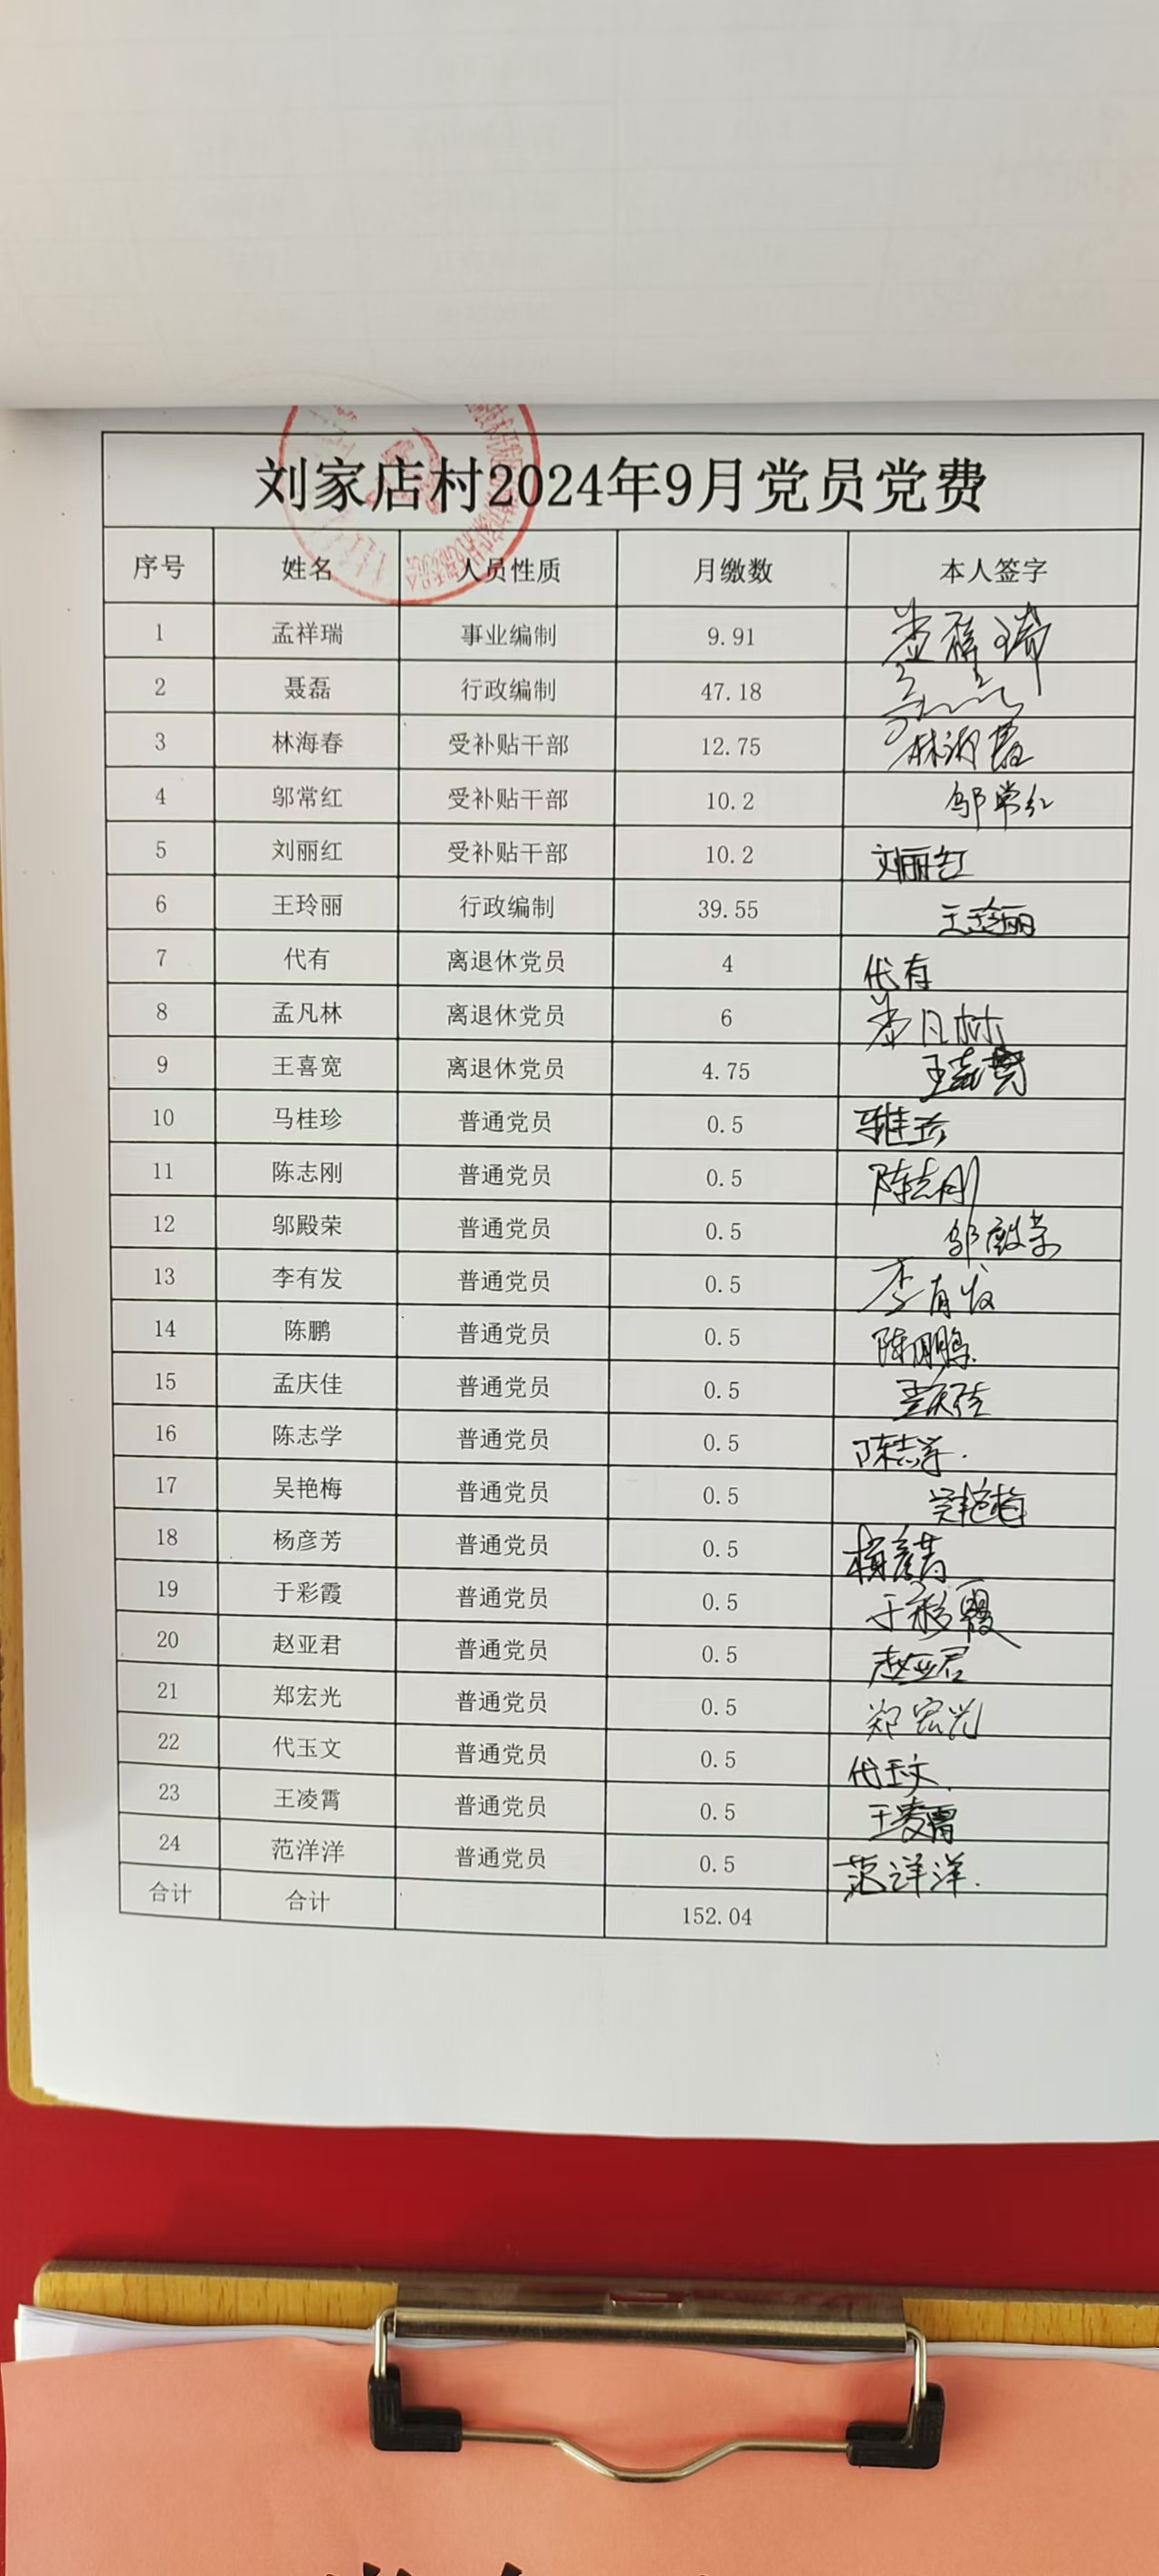 刘家店村2024年9月党员党费
序号 姓名 人员性质 月缴数 本人签字
1 孟祥瑞 事业编制 9.91 孟祥瑞
2 聂磊 行政编制 47.18
3 林海春 受补贴干部 12.75 林海春
4 邬常红 受补贴干部 10.2 邬常红
5 刘丽红 受补贴干部 10.2 刘丽红
6 王玲丽 行政编制 39.55 王玲丽
7 代有 离退休党员 4 代有
8 孟凡林 离退休党员 6 孟凡林
9 王喜宽 离退休党员 4.75 王喜宽
10 马桂珍 普通党员 0.5 马桂珍
11 陈志刚 普通党员 0.5 陈志刚
12 邬殿荣 普通党员 0.5 邬殿荣
13 李有发 普通党员 0.5 李有发
14 陈鹏 普通党员 0.5 陈鹏
15 孟庆佳 普通党员 0.5 孟庆佳
16 陈志学 普通党员 0.5 陈志学.
17 吴艳梅 普通党员 0.5 吴艳梅
18 杨彦芳 普通党员 0.5 杨彦芳
19 于彩霞 普通党员 0.5 于彩霞
20 赵亚君 普通党员 0.5 赵亚君
21 郑宏光 普通党员 0.5 郑宏光
22 代玉文 普通党员 0.5 代玉文.
23 王凌霄 普通党员 0.5 王凌霄
24 范洋洋 普通党员 0.5 范洋洋.
合计 合计 152.04